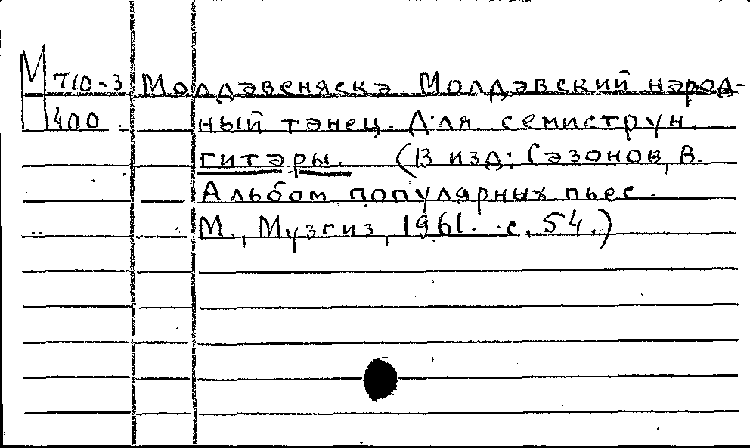 М 710-3 Молдавеняска. Молдавский народ-
400 ный танец. Для семиструн.
гитары. (В изд: Сазонов, В.
Альбом популярных пьес.
М., Музгиз, 1961. с. 54.)